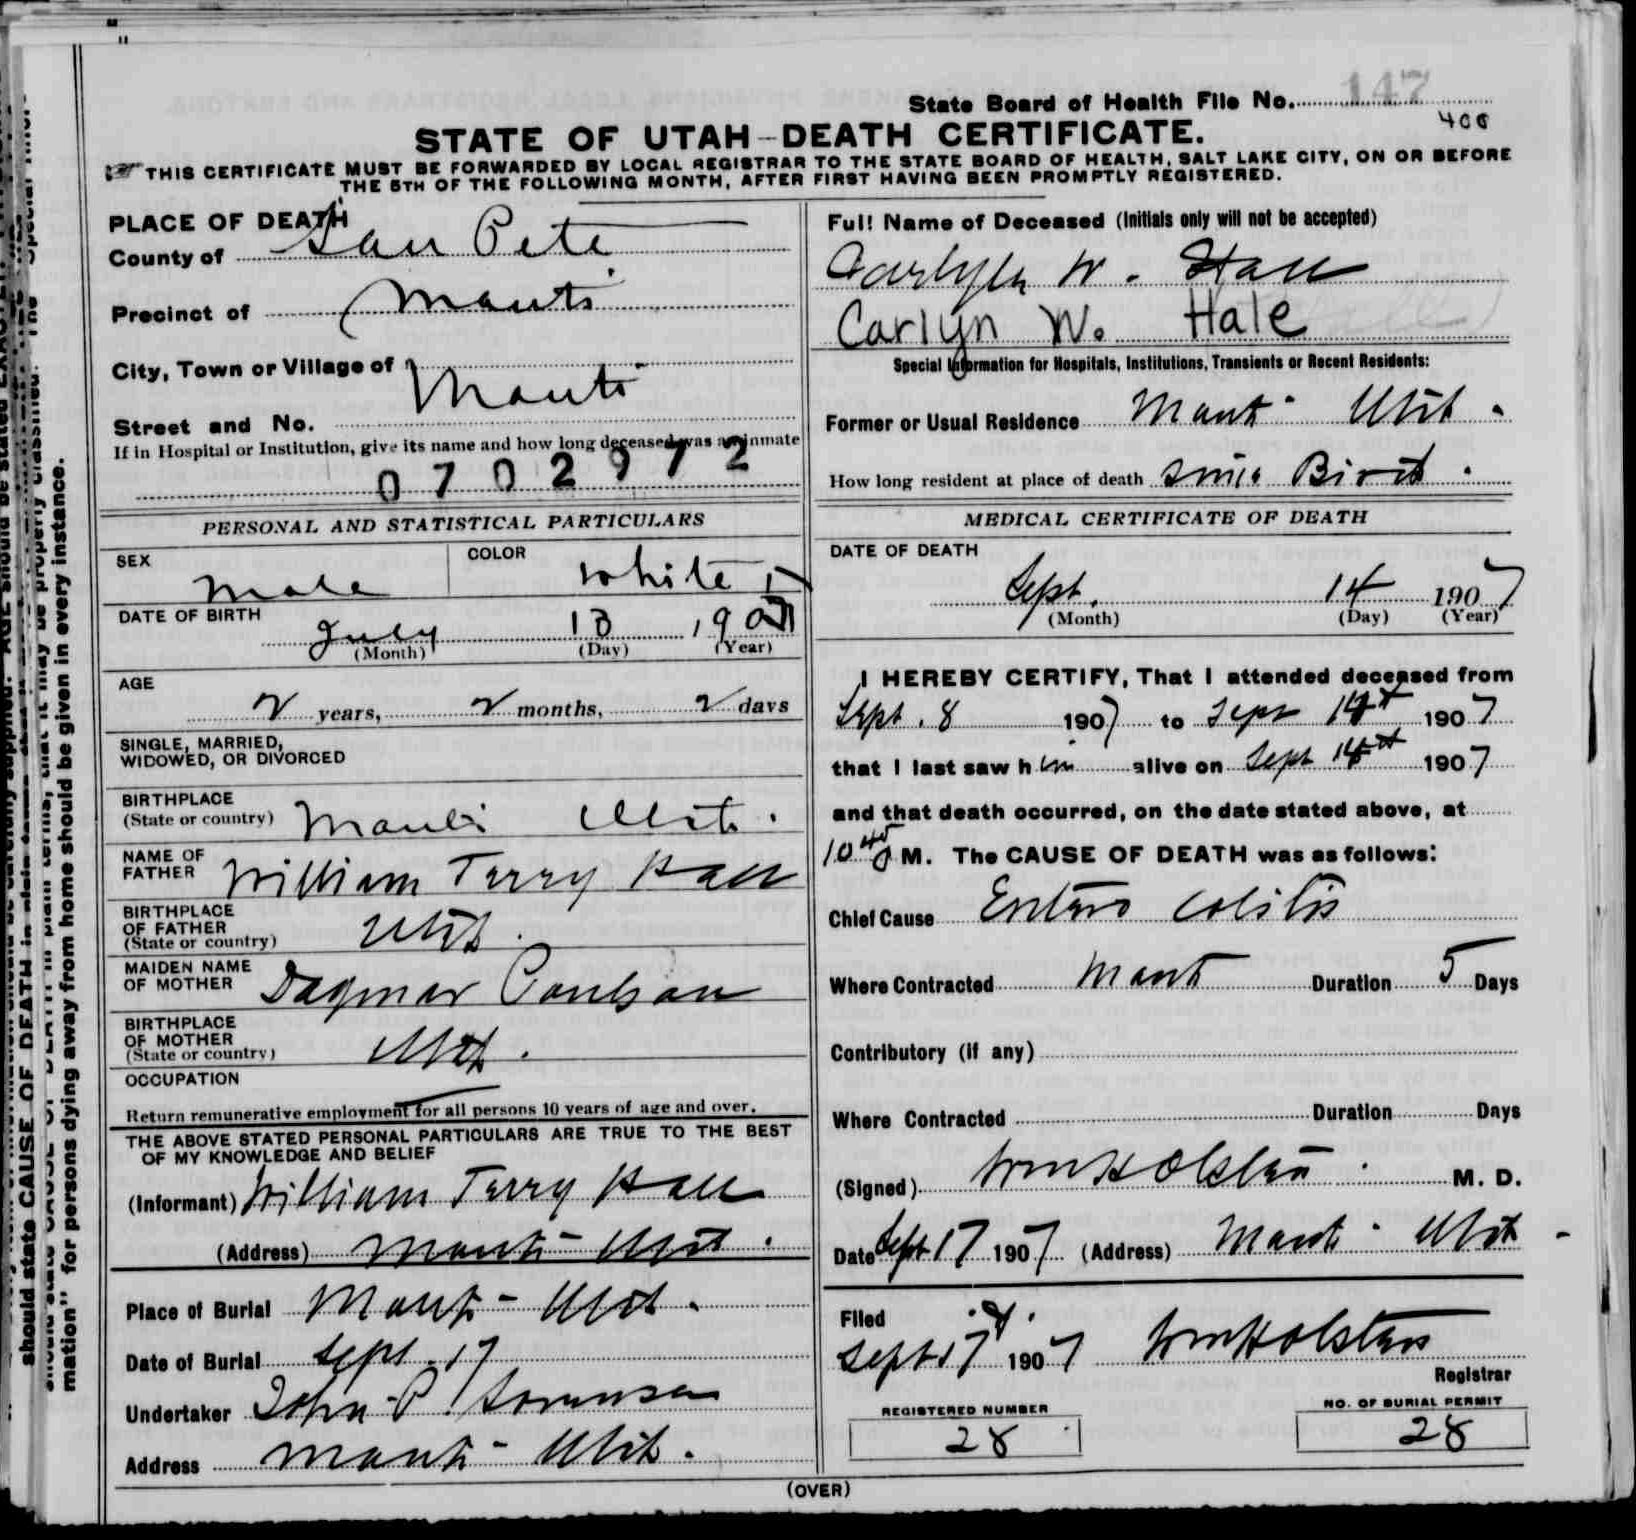 State Board of Health File No. 147
STATE OF UTAH—DEATH CERTIFICATE.
THIS CERTIFICATE MUST BE FORWARDED BY LOCAL REGISTRAR TO THE STATE BOARD OF HEALTH, SALT LAKE CITY, ON OR BEFORE
THE 5TH OF THE FOLLOWING MONTH, AFTER FIRST HAVING BEEN PROMPTLY REGISTERED.
PLACE OF DEATH
County of San Pete
Precinct of Manti
City, Town or Village of Manti
Street and No.
If in Hospital or Institution, give its name and how long deceased was an inmate
0702972
PERSONAL AND STATISTICAL PARTICULARS
SEX Male COLOR White
DATE OF BIRTH
July 13 190
(Month) (Day) (Year)
AGE
2 years, 2 months, 2 days
SINGLE, MARRIED,
WIDOWED, OR DIVORCED
BIRTHPLACE
(State or country) Manti Utah.
NAME OF
FATHER William Terry Hall
BIRTHPLACE
OF FATHER
(State or country) Utah.
MAIDEN NAME
OF MOTHER Dagmar Poulson
BIRTHPLACE
OF MOTHER
(State or country) Utah.
OCCUPATION
Return remunerative employment for all persons 10 years of age and over.
THE ABOVE STATED PERSONAL PARTICULARS ARE TRUE TO THE BEST
OF MY KNOWLEDGE AND BELIEF
(Informant) William Terry Hall
(Address) Manti - Utah.
Place of Burial Manti - Utah.
Date of Burial Sept. 17
Undertaker John P. Sorensen
Address Manti - Utah.
Full Name of Deceased (Initials only will not be accepted)
Carlyn W. Hall
Carlyn W. Hale
Special Information for Hospitals, Institutions, Transients or Recent Residents:
Former or Usual Residence Manti - Utah.
How long resident at place of death Since Birth.
MEDICAL CERTIFICATE OF DEATH
DATE OF DEATH
Sept. 14 1907
(Month) (Day) (Year)
I HEREBY CERTIFY, That I attended deceased from
Sept. 8 1907 to Sept 14th 1907
that I last saw him alive on Sept 14th 1907
and that death occurred, on the date stated above, at
10 45 M. The CAUSE OF DEATH was as follows:
Chief Cause Entero Colitis
Where Contracted Manti Duration 5 Days
Contributory (if any)
Where Contracted Duration Days
(Signed) Wm H Olsten. M. D.
Date Sept 17 1907 (Address) Manti - Utah -
Filed
Sept 17 1907 Wm H Olsten
Registrar
REGISTERED NUMBER
28
NO. OF BURIAL PERMIT
28
(OVER)
should state CAUSE OF DEATH in
mation" for persons dying away from home should be given in every instance.